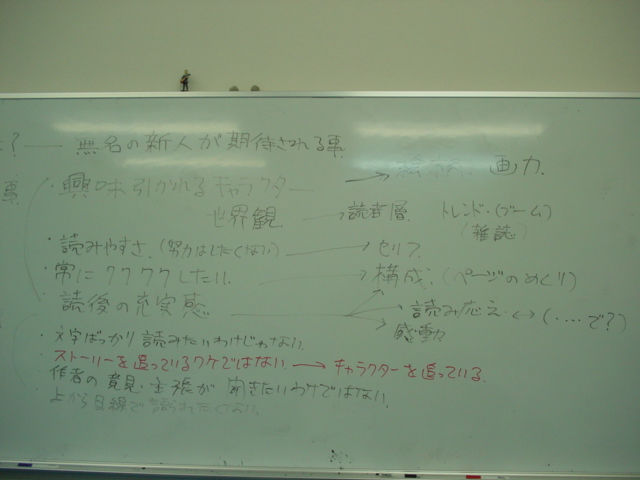 ? 無名の新人が期待される事
事 ・興味引かれるキャラクター → 画力.
世界観 → 読者層. トレンド・(ブーム)
(雑誌)
・読みやすさ. (努力はしたくない) → セリフ.
・常にワクワクしたい. → 構成. (ページのめくり)
・読後の充実感 → 読み応え ↔ (‥‥で?)
感動
・文字ばっかり読みたいわけじゃない.
ストーリーを追っているワケではない. → キャラクターを追っている.
作者の意見・主張が聞きたいわけではない.
上から目線で語られたくない.